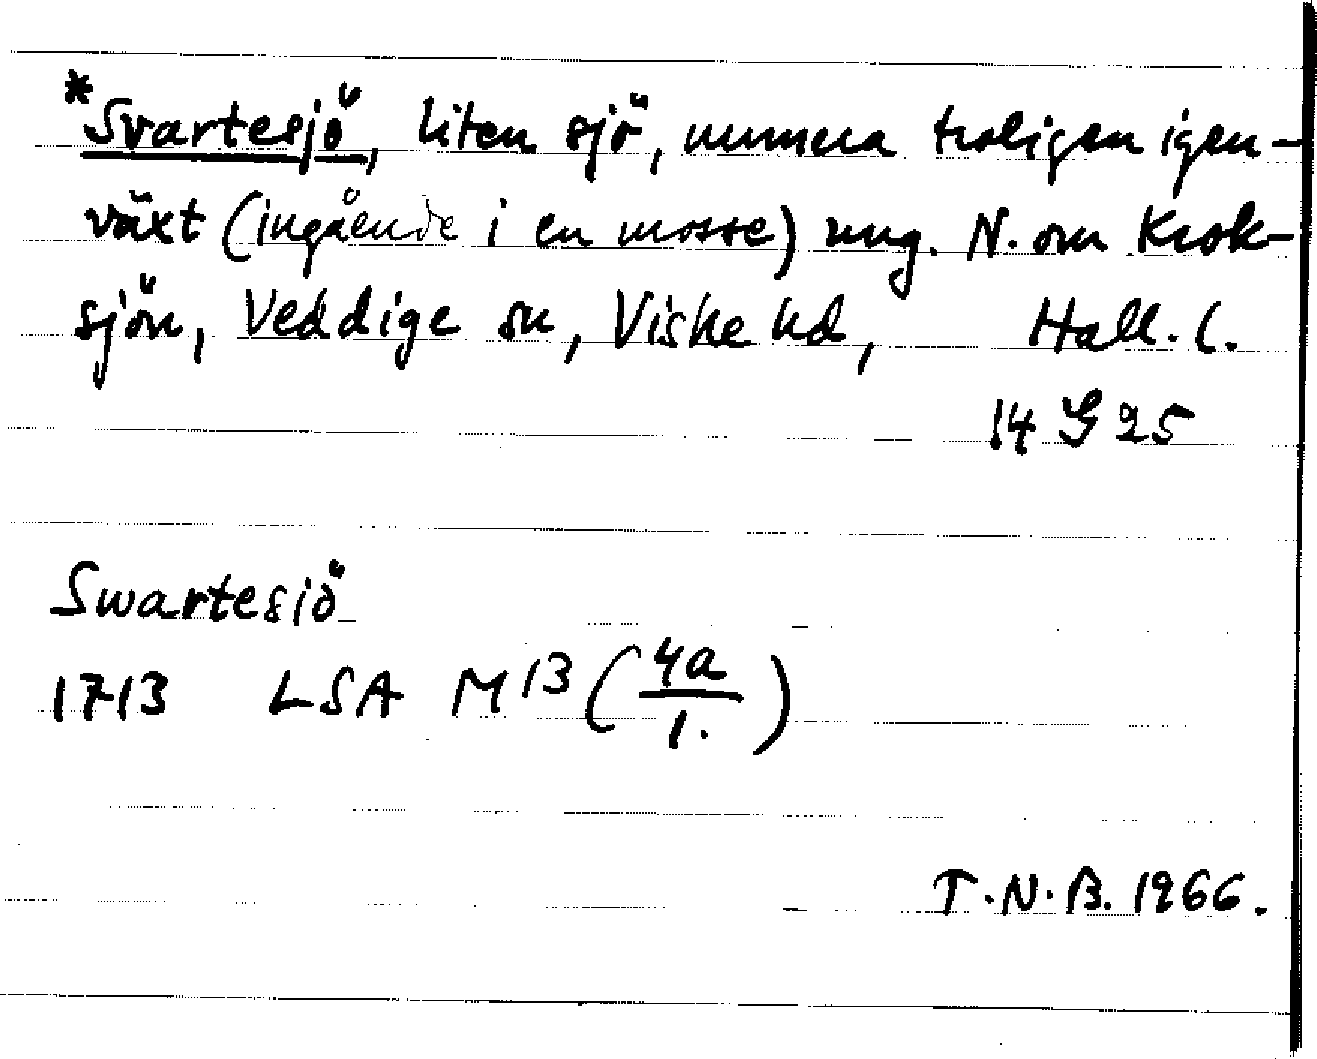 *Svartesjö, liten sjö, numera troligen igen-
växt (ingående i en mosse) ung. N. om Krok-
sjön, Veddige sn, Viske hd, Hall. l.
14 G 25
Swartesiö
1713 LSA M13 (4a/1.)
T.N.B. 1966.